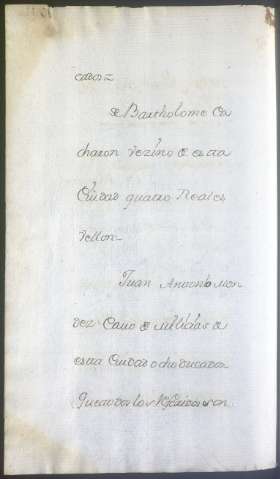 de Bartholome Co
charon Vezino de esta
Ciudad quatro Reales
Vellon
Juan Antonio Men
dez Cauo de Milizias de
esta Ciudad ocho ducados